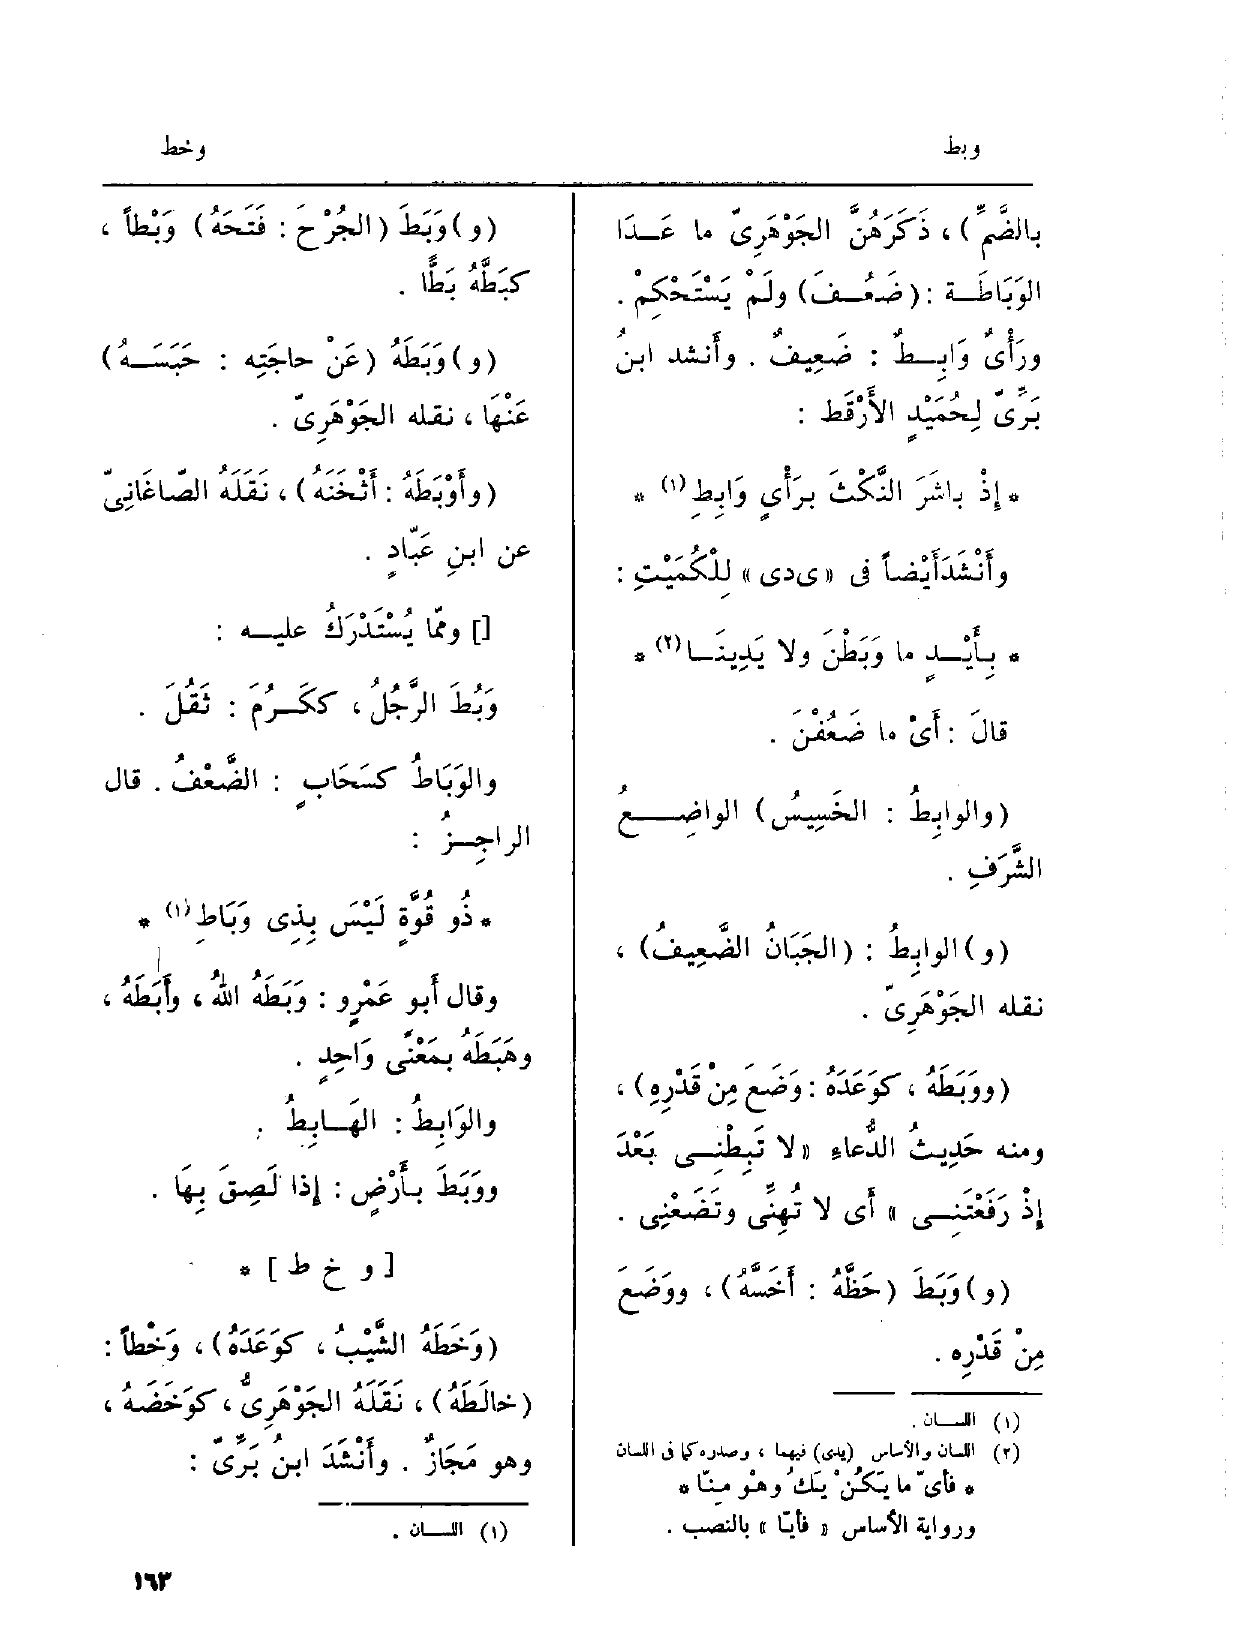 وبط
وخط
بالضَّمِّ)، ذَكَرَهُنَّ الجَوْهَرِىّ ما عَــدَا
الوَبَاطَـة : (ضَعُــفَ) ولَمْ يَسْتَحْكِمْ .
ورَأْىٌ وَابِــطٌ : ضَعِيفٌ . وأَنشد ابنُ
بَرِّىّ لِحُمَيْدٍ الأَرْقَط :
* إِذْ باشَرَ النَّكْثَ بِرَأْىٍ وَابِطِ (١) *
وأَنْشَدَ أَيْضاً فى «ى د ى» لِلْكُمَيْتِ :
* بِأَيْــدٍ ما وَبَطْنَ ولا يَدِينَــا (٢) *
قالَ : أَىْ ما ضَعُفْنَ .
(والوابِطُ : الخَسِيسُ) الواضِــعُ
الشَّرَفِ .
(و) الوابِطُ : (الجَبَانُ الضَّعِيفُ) ،
نقله الجَوْهَرِىّ .
(ووَبَطَهُ ، كوَعَدَهُ : وَضَعَ مِنْ قَدْرِهِ) ،
ومنه حَدِيثُ الدُّعاءِ «لا تَبِطْنِــى بَعْدَ
إِذْ رَفَعْتَنِــى» أَى لا تُهِنِّى وتَضَعْنِى .
(و) وَبَطَ (حَظَّهُ : أَخَسَّهُ) ، ووَضَعَ
مِنْ قَدْرِه .
(١) اللســان .
(٢) اللسان والأساس (يدى) فيهما ، وصدره كما فى اللسان
* فأىّ ما يَكُنْ يَكُ وهْو مِنّا *
ورواية الأساس « فأيّا » بالنصب .
(و) وَبَطَ (الجُرْحَ : فَتَحَهُ) وَبْطاً ،
كبَطَّهُ بَطًّا .
(و) وَبَطَهُ (عَنْ حاجَتِه : حَبَسَــهُ)
عَنْهَا ، نقله الجَوْهَرِىّ .
(وأَوْبَطَهُ : أَثْخَنَهُ) ، نَقَلَهُ الصّاغَانِىّ
عن ابنِ عَبّادٍ .
[] وممّا يُسْتَدْرَكُ عليــه :
وَبُطَ الرَّجُلُ ، ككَــرُمَ : ثَقُلَ .
والوَبَاطُ كسَحَابٍ : الضَّعْفُ . قال
الراجِــزُ :
* ذُو قُوَّةٍ لَيْسَ بِذِى وَبَاطِ (١) *
وقال أَبو عَمْرٍو : وَبَطَهُ اللهُ ، وأَبَطَهُ ،
وهَبَطَهُ بمَعْنًى وَاحِدٍ .
والوَابِطُ : الهَــابِطُ .
ووَبَطَ بأَرْضٍ : إِذا لَصِقَ بِهَا .
[ و خ ط ] *
(وَخَطَهُ الشَّيْبُ ، كوَعَدَهُ) ، وَخْطاً :
(خالَطَهُ) ، نَقَلَهُ الجَوْهَرِىُّ ، كوَخَضَهُ ،
وهو مَجَازٌ . وأَنْشَدَ ابنُ بَرِّىّ :
(١) اللســان .
١٦٣